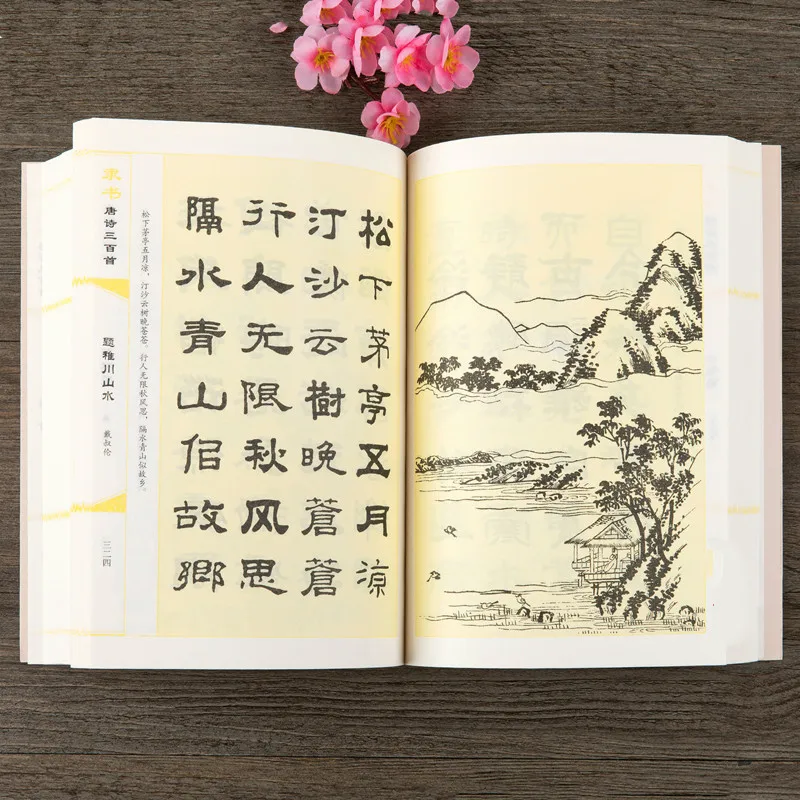 松下茅亭五月涼
汀沙云樹晚蒼蒼
行人无限秋风思
隔水青山佀故鄉
松下茅亭五月凉，汀沙云树晚苍苍。行人无限秋风思，隔水青山似故乡。
隶书 唐诗三百首
题稚川山水
戴叔伦
三二四